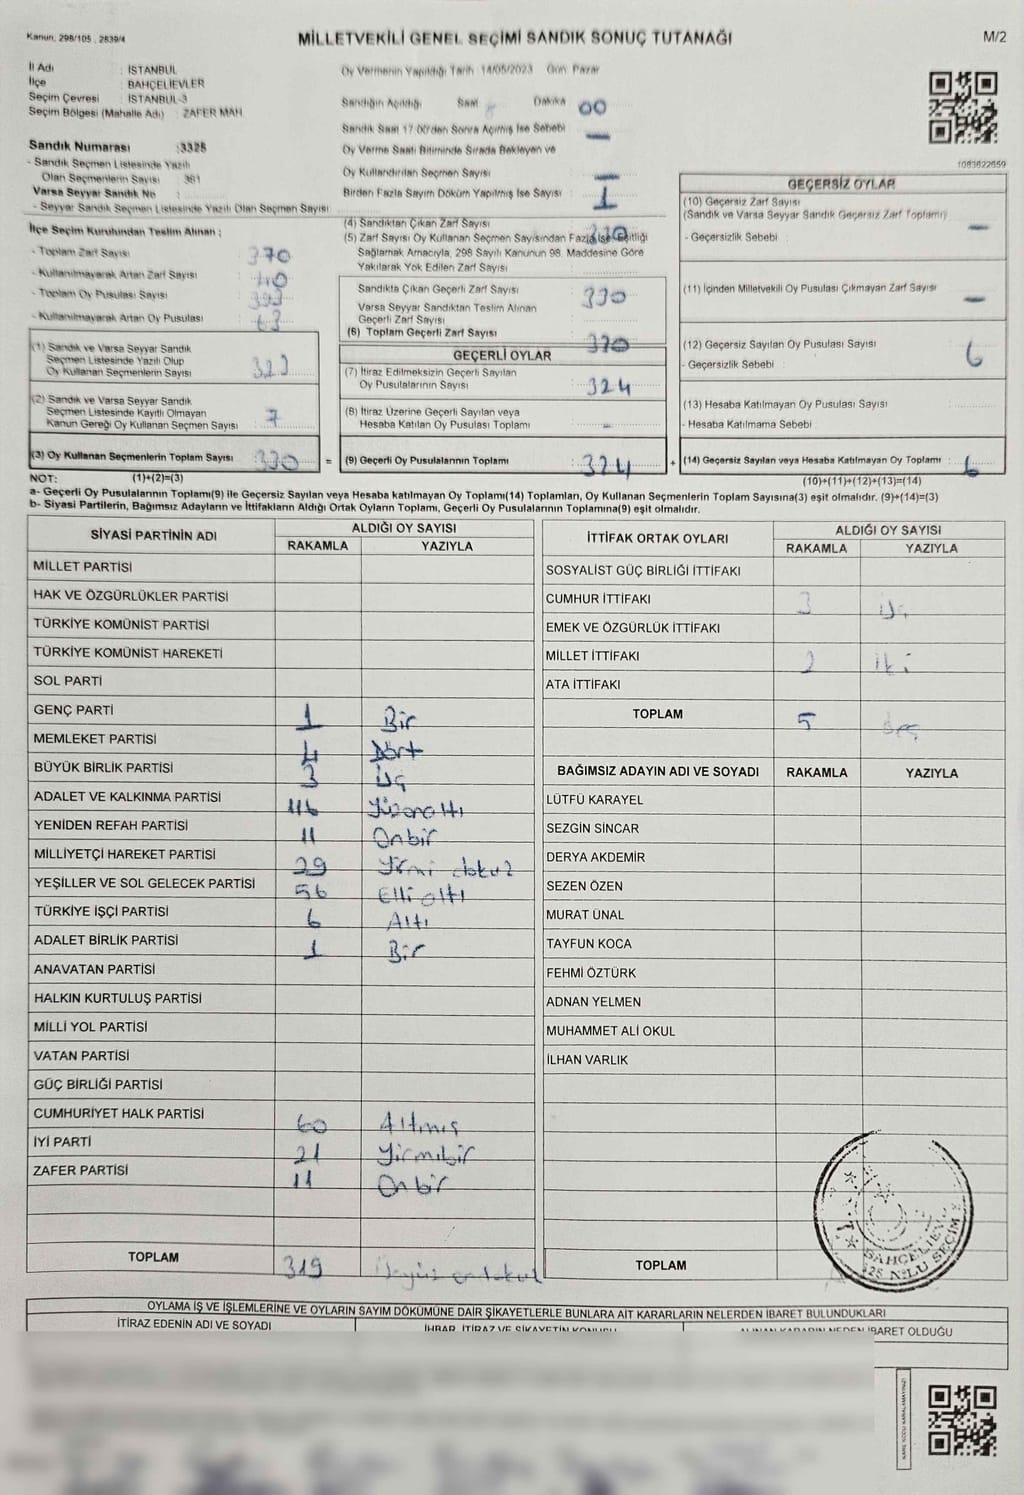 Kanun, 298/105 , 2839/4
MİLLETVEKİLİ GENEL SEÇİMİ SANDIK SONUÇ TUTANAĞI
M/2
İl Adı : İSTANBUL
İlçe : BAHÇELİEVLER
Seçim Çevresi : İSTANBUL-3
Seçim Bölgesi (Mahalle Adı) : ZAFER MAH.
Sandık Numarası :3325
- Sandık Seçmen Listesinde Yazılı
Olan Seçmenlerin Sayısı : 361
Varsa Seyyar Sandık No :
- Seyyar Sandık Seçmen Listesinde Yazılı Olan Seçmen Sayısı :
İlçe Seçim Kurulundan Teslim Alınan ;
- Toplam Zarf Sayısı : 370
- Kullanılmayarak Artan Zarf Sayısı : 40
- Toplam Oy Pusulası Sayısı : 393
- Kullanılmayarak Artan Oy Pusulası : 63
(1) Sandık ve Varsa Seyyar Sandık
Seçmen Listesinde Yazılı Olup
Oy Kullanan Seçmenlerin Sayısı : 323
(2) Sandık ve Varsa Seyyar Sandık
Seçmen Listesinde Kayıtlı Olmayan
Kanun Gereği Oy Kullanan Seçmen Sayısı : 7
(3) Oy Kullanan Seçmenlerin Toplam Sayısı : 330
Oy Vermenin Yapıldığı Tarih 14/05/2023 Gün Pazar
Sandığın Açıldığı Saat 8 Dakika 00
Sandık Saat 17:00'den Sonra Açılmış İse Sebebi : —
Oy Verme Saati Bitiminde Sırada Bekleyen ve
Oy Kullandırılan Seçmen Sayısı : —
Birden Fazla Sayım Döküm Yapılmış İse Sayısı : 1
(4) Sandıktan Çıkan Zarf Sayısı : 330
(5) Zarf Sayısı Oy Kullanan Seçmen Sayısından Fazla İse Eşitliği
Sağlamak Amacıyla, 298 Sayılı Kanunun 98. Maddesine Göre
Yakılarak Yok Edilen Zarf Sayısı :
Sandıkta Çıkan Geçerli Zarf Sayısı : 330
Varsa Seyyar Sandıktan Teslim Alınan
Geçerli Zarf Sayısı :
(6) Toplam Geçerli Zarf Sayısı : 330
GEÇERLİ OYLAR
(7) İtiraz Edilmeksizin Geçerli Sayılan
Oy Pusulalarının Sayısı : 324
(8) İtiraz Üzerine Geçerli Sayılan veya
Hesaba Katılan Oy Pusulası Toplamı : -
= (9) Geçerli Oy Pusulalarının Toplamı : 324
1083822659
GEÇERSİZ OYLAR
(10) Geçersiz Zarf Sayısı
(Sandık ve Varsa Seyyar Sandık Geçersiz Zarf Toplamı) : —
- Geçersizlik Sebebi :
(11) İçinden Milletvekili Oy Pusulası Çıkmayan Zarf Sayısı : —
(12) Geçersiz Sayılan Oy Pusulası Sayısı : 6
- Geçersizlik Sebebi :
(13) Hesaba Katılmayan Oy Pusulası Sayısı :
- Hesaba Katılmama Sebebi :
+ (14) Geçersiz Sayılan veya Hesaba Katılmayan Oy Toplamı : 6
NOT: (1)+(2)=(3)
(10)+(11)+(12)+(13)=(14)
a- Geçerli Oy Pusulalarının Toplamı(9) ile Geçersiz Sayılan veya Hesaba katılmayan Oy Toplamı(14) Toplamları, Oy Kullanan Seçmenlerin Toplam Sayısına(3) eşit olmalıdır. (9)+(14)=(3)
b- Siyasi Partilerin, Bağımsız Adayların ve İttifakların Aldığı Ortak Oyların Toplamı, Geçerli Oy Pusulalarının Toplamına(9) eşit olmalıdır.
SİYASİ PARTİNİN ADI
ALDIĞI OY SAYISI
RAKAMLA YAZIYLA
MİLLET PARTİSİ
HAK VE ÖZGÜRLÜKLER PARTİSİ
TÜRKİYE KOMÜNİST PARTİSİ
TÜRKİYE KOMÜNİST HAREKETİ
SOL PARTİ
GENÇ PARTİ 1 Bir
MEMLEKET PARTİSİ 4 Dört
BÜYÜK BİRLİK PARTİSİ 3 Üç
ADALET VE KALKINMA PARTİSİ 116 Yüzonaltı
YENİDEN REFAH PARTİSİ 11 Onbir
MİLLİYETÇİ HAREKET PARTİSİ 29 Yirmi dokuz
YEŞİLLER VE SOL GELECEK PARTİSİ 56 Elli altı
TÜRKİYE İŞÇİ PARTİSİ 6 Altı
ADALET BİRLİK PARTİSİ 1 Bir
ANAVATAN PARTİSİ
HALKIN KURTULUŞ PARTİSİ
MİLLİ YOL PARTİSİ
VATAN PARTİSİ
GÜÇ BİRLİĞİ PARTİSİ
CUMHURİYET HALK PARTİSİ 60 Altmış
İYİ PARTİ 21 Yirmibir
ZAFER PARTİSİ 11 Onbir
TOPLAM 319 Üçyüz ondokuz
İTTİFAK ORTAK OYLARI
ALDIĞI OY SAYISI
RAKAMLA YAZIYLA
SOSYALİST GÜÇ BİRLİĞİ İTTİFAKI
CUMHUR İTTİFAKI 3 Üç
EMEK VE ÖZGÜRLÜK İTTİFAKI
MİLLET İTTİFAKI 2 iki
ATA İTTİFAKI
TOPLAM 5 beş
BAĞIMSIZ ADAYIN ADI VE SOYADI RAKAMLA YAZIYLA
LÜTFÜ KARAYEL
SEZGİN SİNCAR
DERYA AKDEMİR
SEZEN ÖZEN
MURAT ÜNAL
TAYFUN KOCA
FEHMİ ÖZTÜRK
ADNAN YELMEN
MUHAMMET ALİ OKUL
İLHAN VARLIK
TOPLAM
OYLAMA İŞ VE İŞLEMLERİNE VE OYLARIN SAYIM DÖKÜMÜNE DAİR ŞİKAYETLERLE BUNLARA AİT KARARLARIN NELERDEN İBARET BULUNDUKLARI
İTİRAZ EDENİN ADI VE SOYADI
İHBAR, İTİRAZ VE ŞİKAYETİN KONUSU
ALINAN KARARIN NEDEN İBARET OLDUĞU